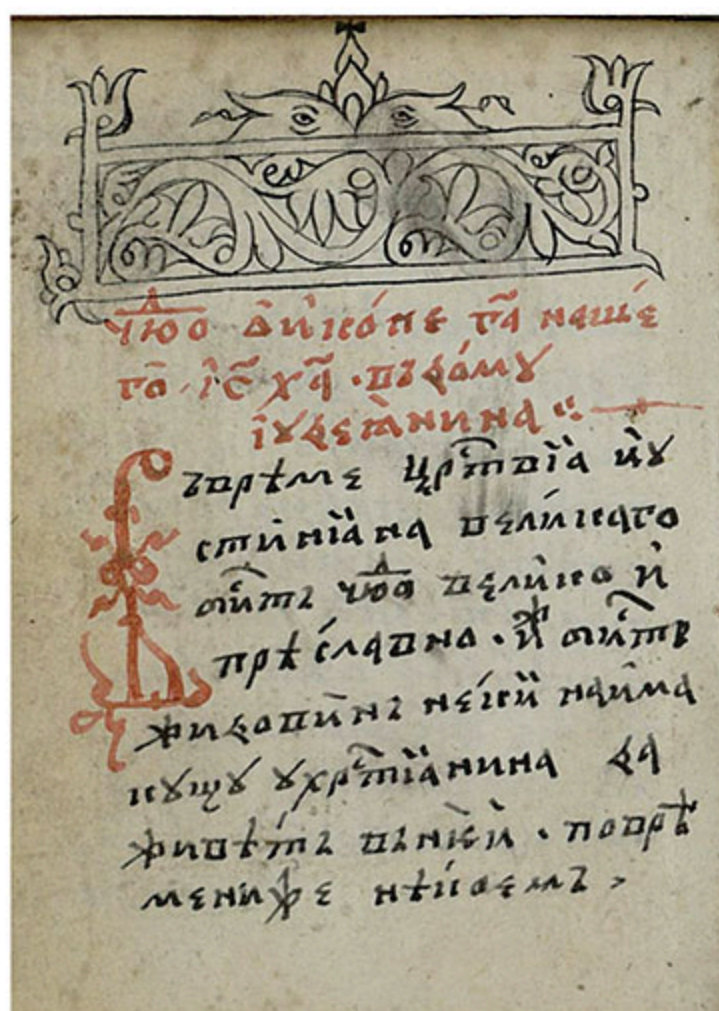 чю҃до ѡ҆ и҆ко́не га҃ наше́
го҃ і҆с҃ х҃а · въдо́мꙋ
і҆ꙋдеꙗ҆нина
Въврѣме цр҃тві́а и҆ꙋ
стинїана вели́каго
би́ть чю҃до вели́ко и҆
прѣсла́вно · и҆ би́ть
жидови́нь не́кїи наи́ма
кꙋщꙋ ꙋхр҃тїанина да
живѣ́ть въ по врѣ
мени же нѣкоемъ